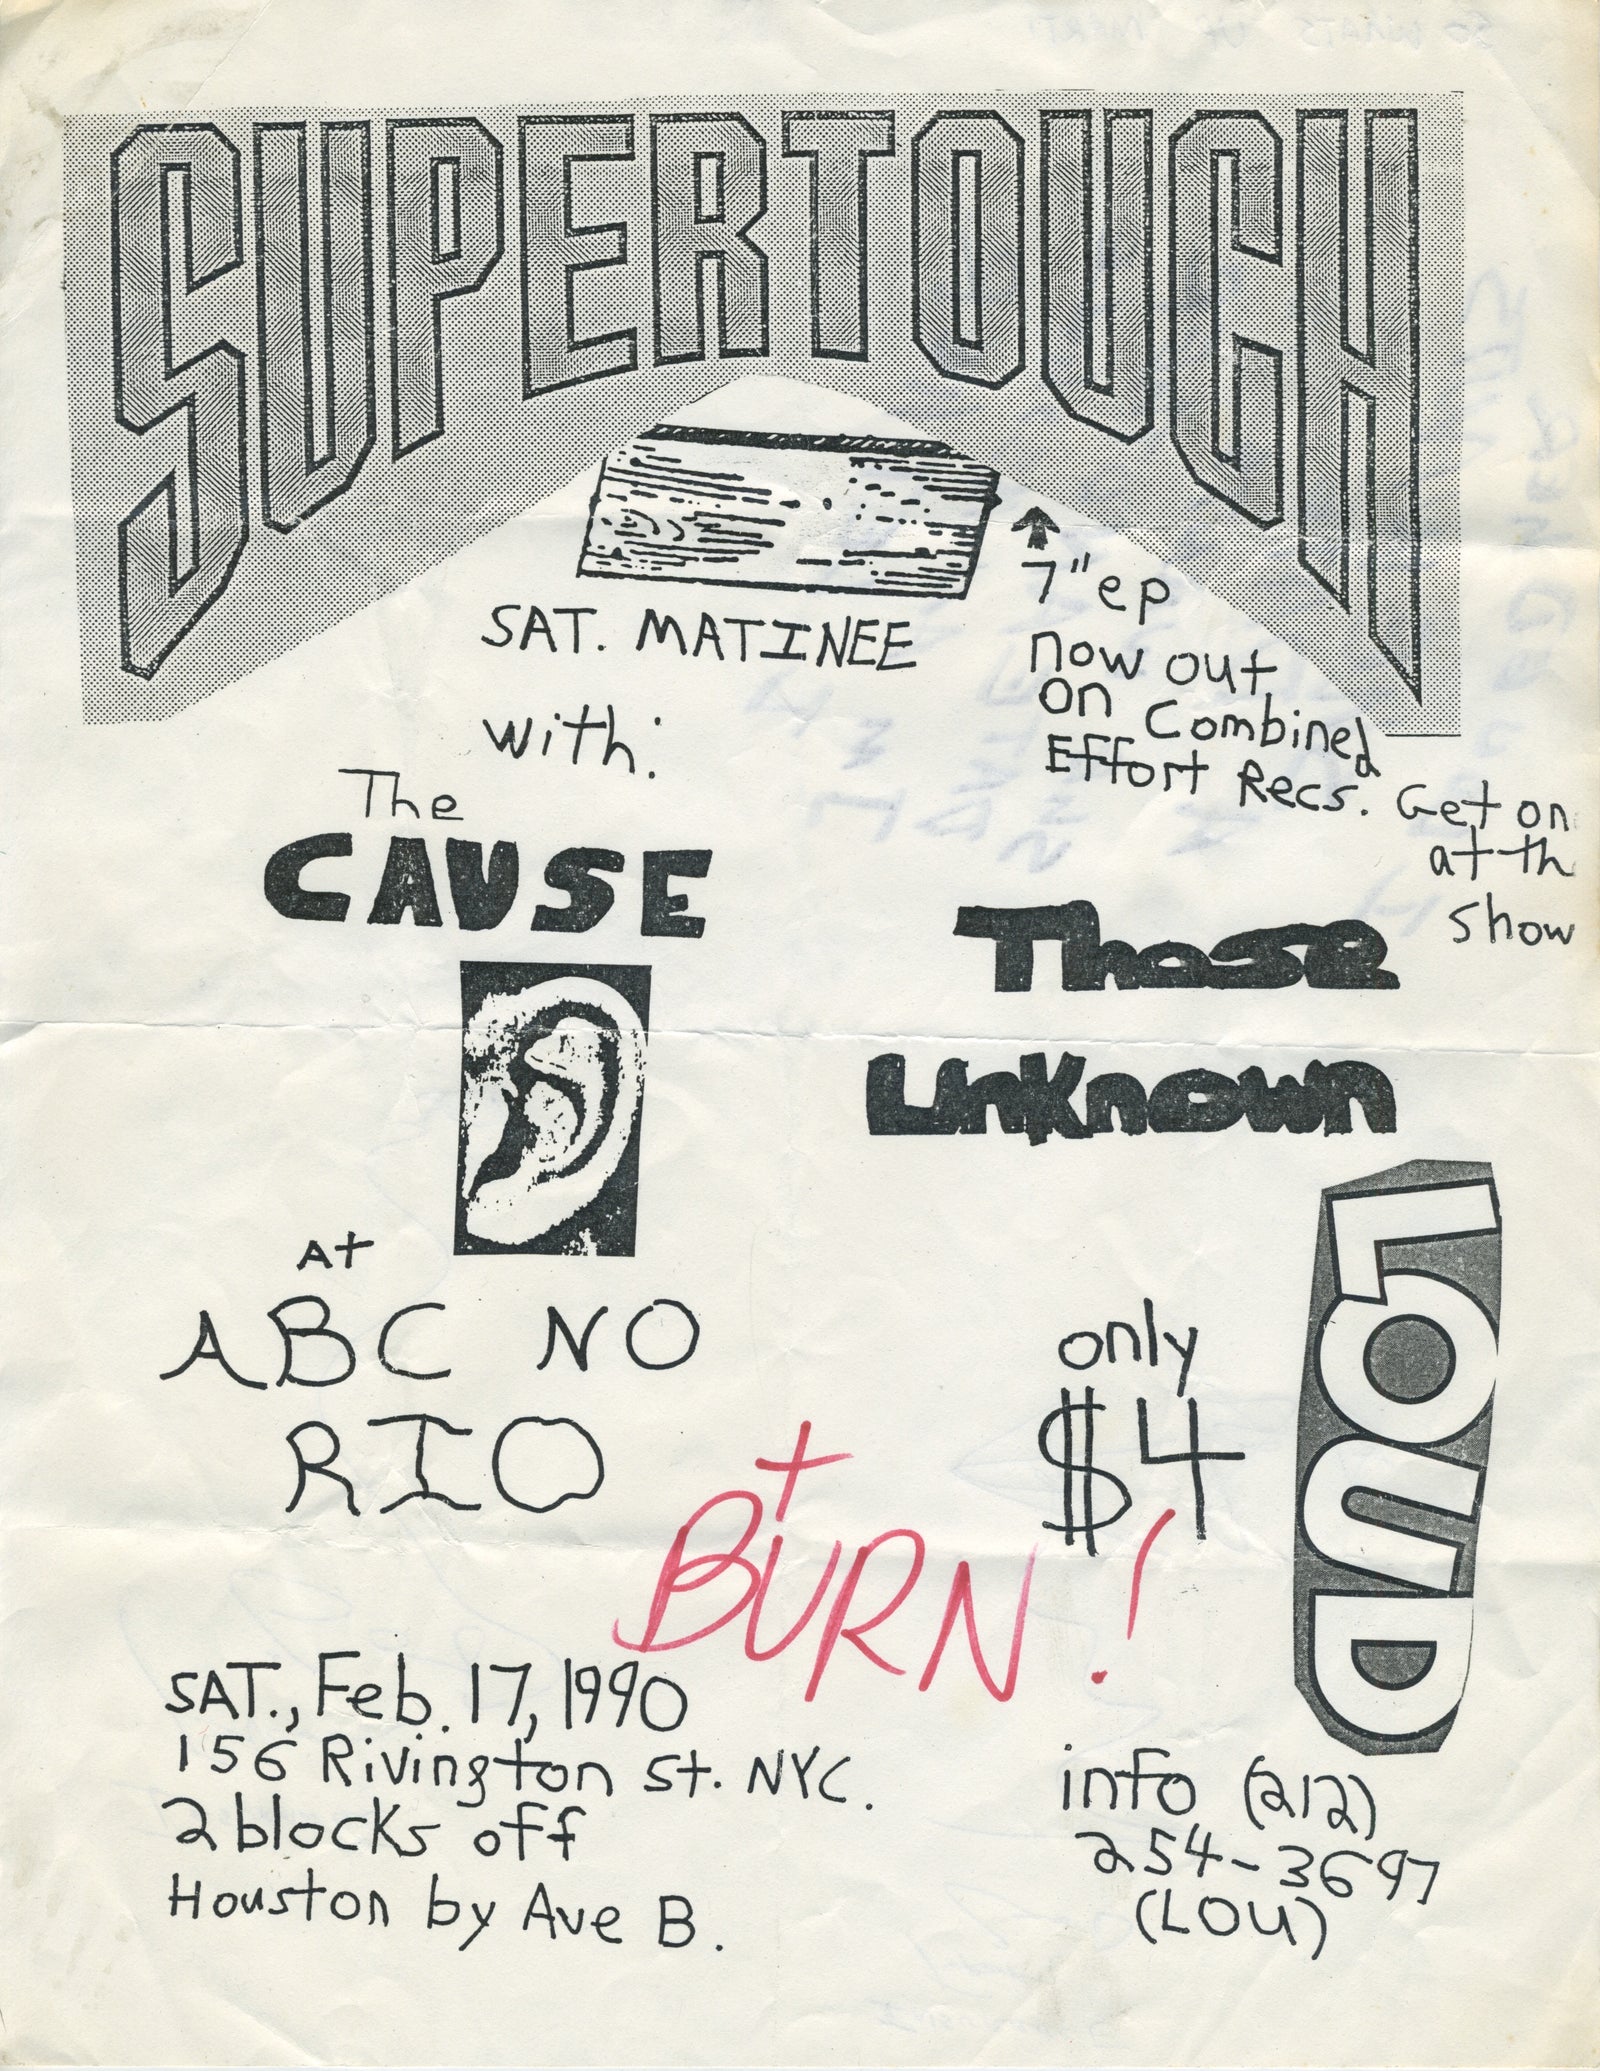 SUPERTOUCH
7" ep
now out
on Combined
Effort Recs. Get on
at th
show
SAT. MATINEE
with:
The
CAUSE
Those
Unknown
LOUD
At
ABC NO
RIO
only
$4
+
BURN!
SAT., Feb. 17, 1990
156 Rivington St. NYC.
2 blocks off
Houston by Ave B.
info (212)
254-3697
(LOU)